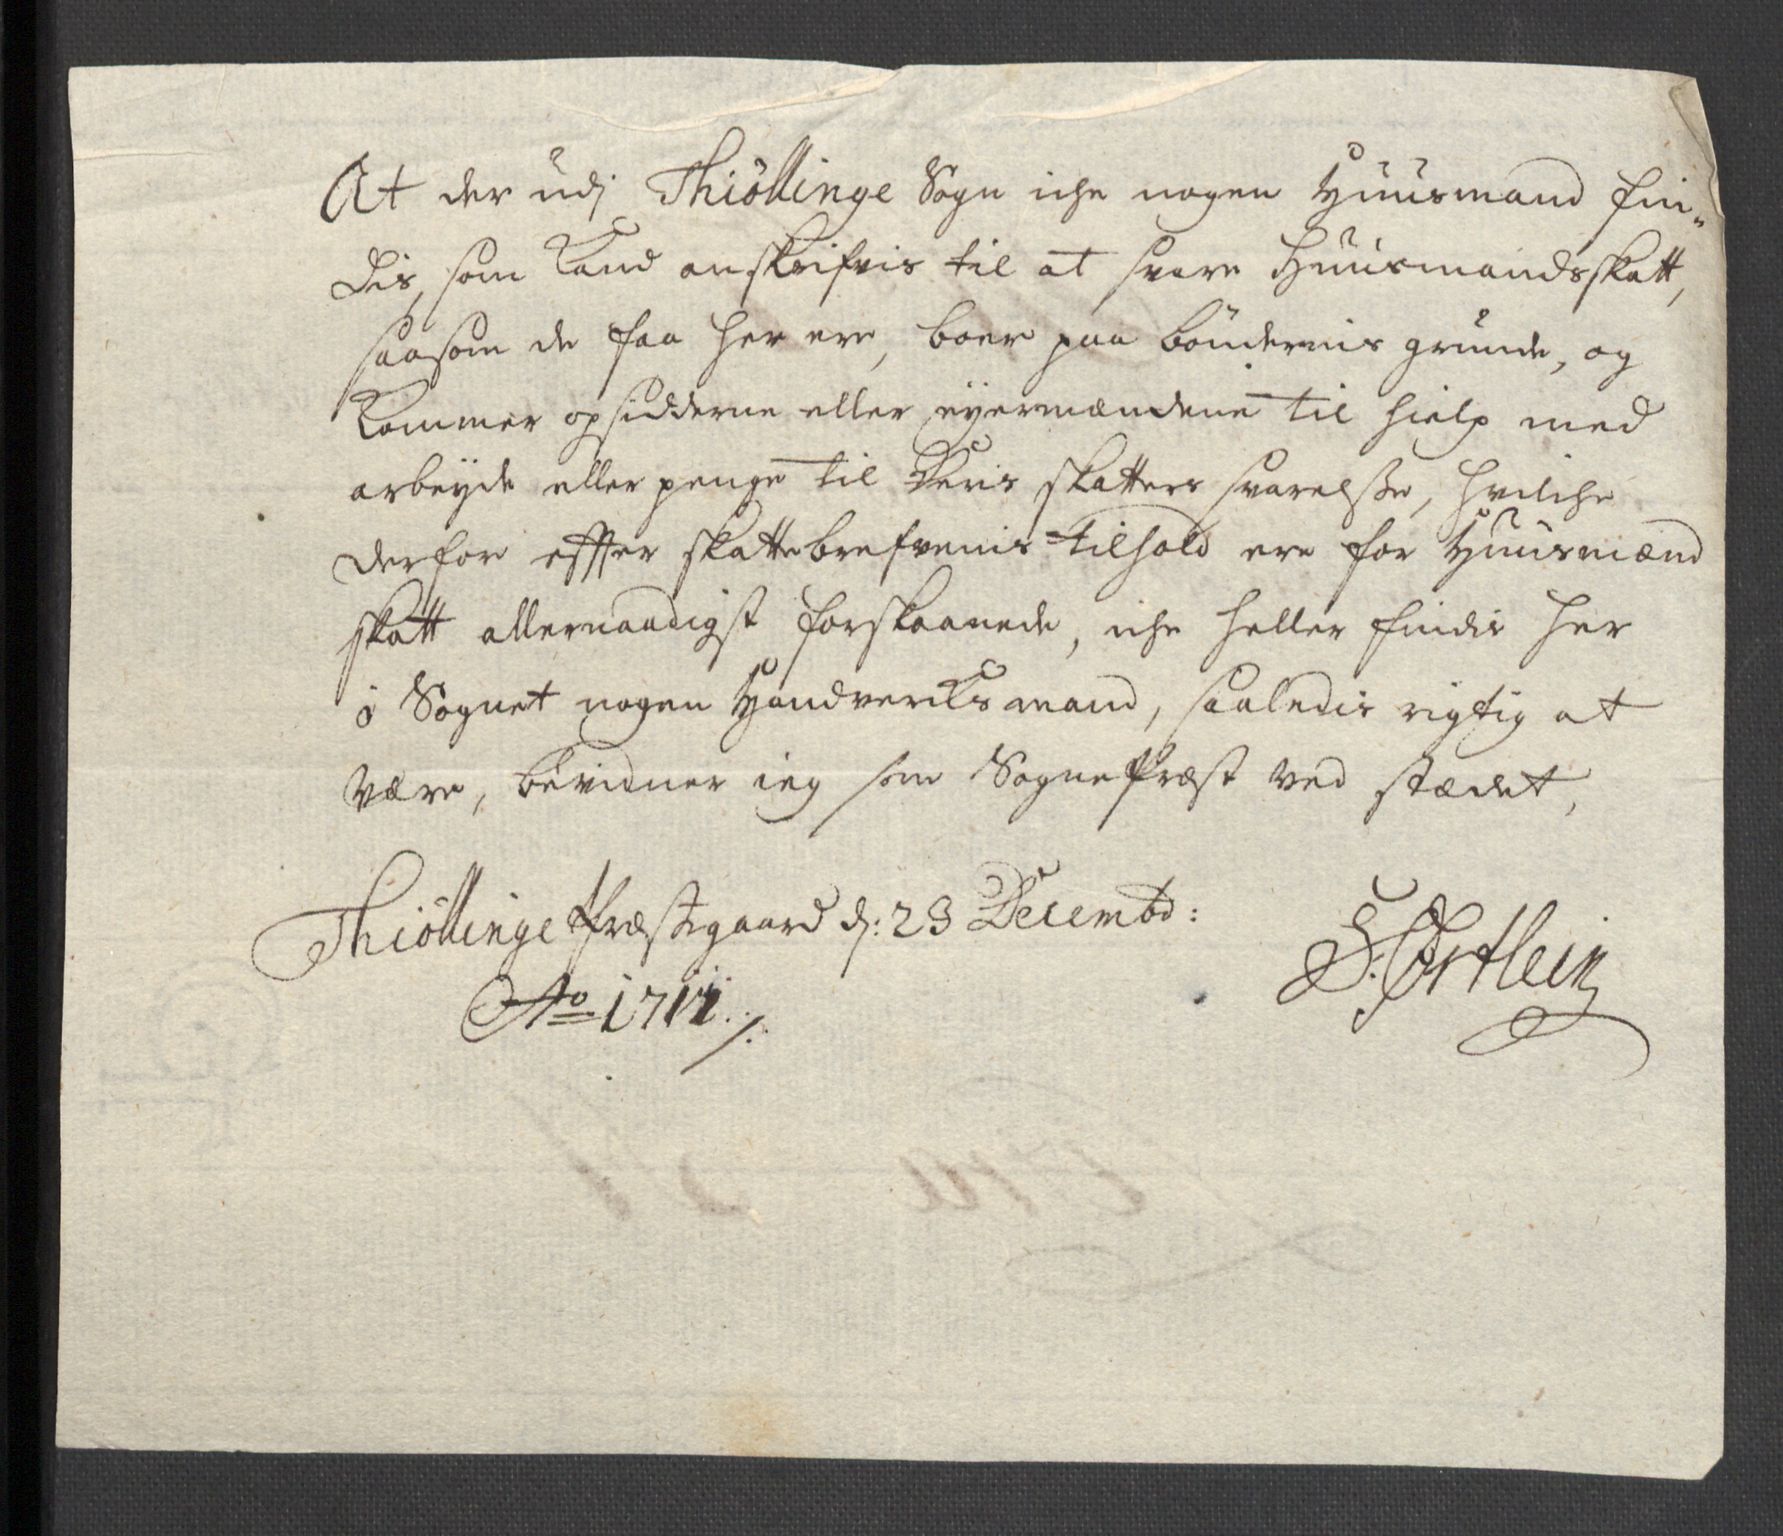 At der udj Thiöllinge Sogn iche nogen Huusmand fin„
dis, som kand anskrifvis til at svare Huusmandsskatt,
saasom de faa her ere, boer paa böndernis grunde, og
kommer opsidderne eller eÿermændene til hielp med
arbeÿde eller penge til deris skatters svarelsse, hvilche
derfor effter skattebrefvenis tilhold ere for Huusmænd
skatt allernaadigst forskaanede, iche heller findis her
i Sognet nogen Handverksmand, saaledis rigtig at
være, bevidner ieg som Sognepræst ved stædet,
Thiöllinge Præstegaard d: 23 Decembr:
Ao 1711
S. Örtlein